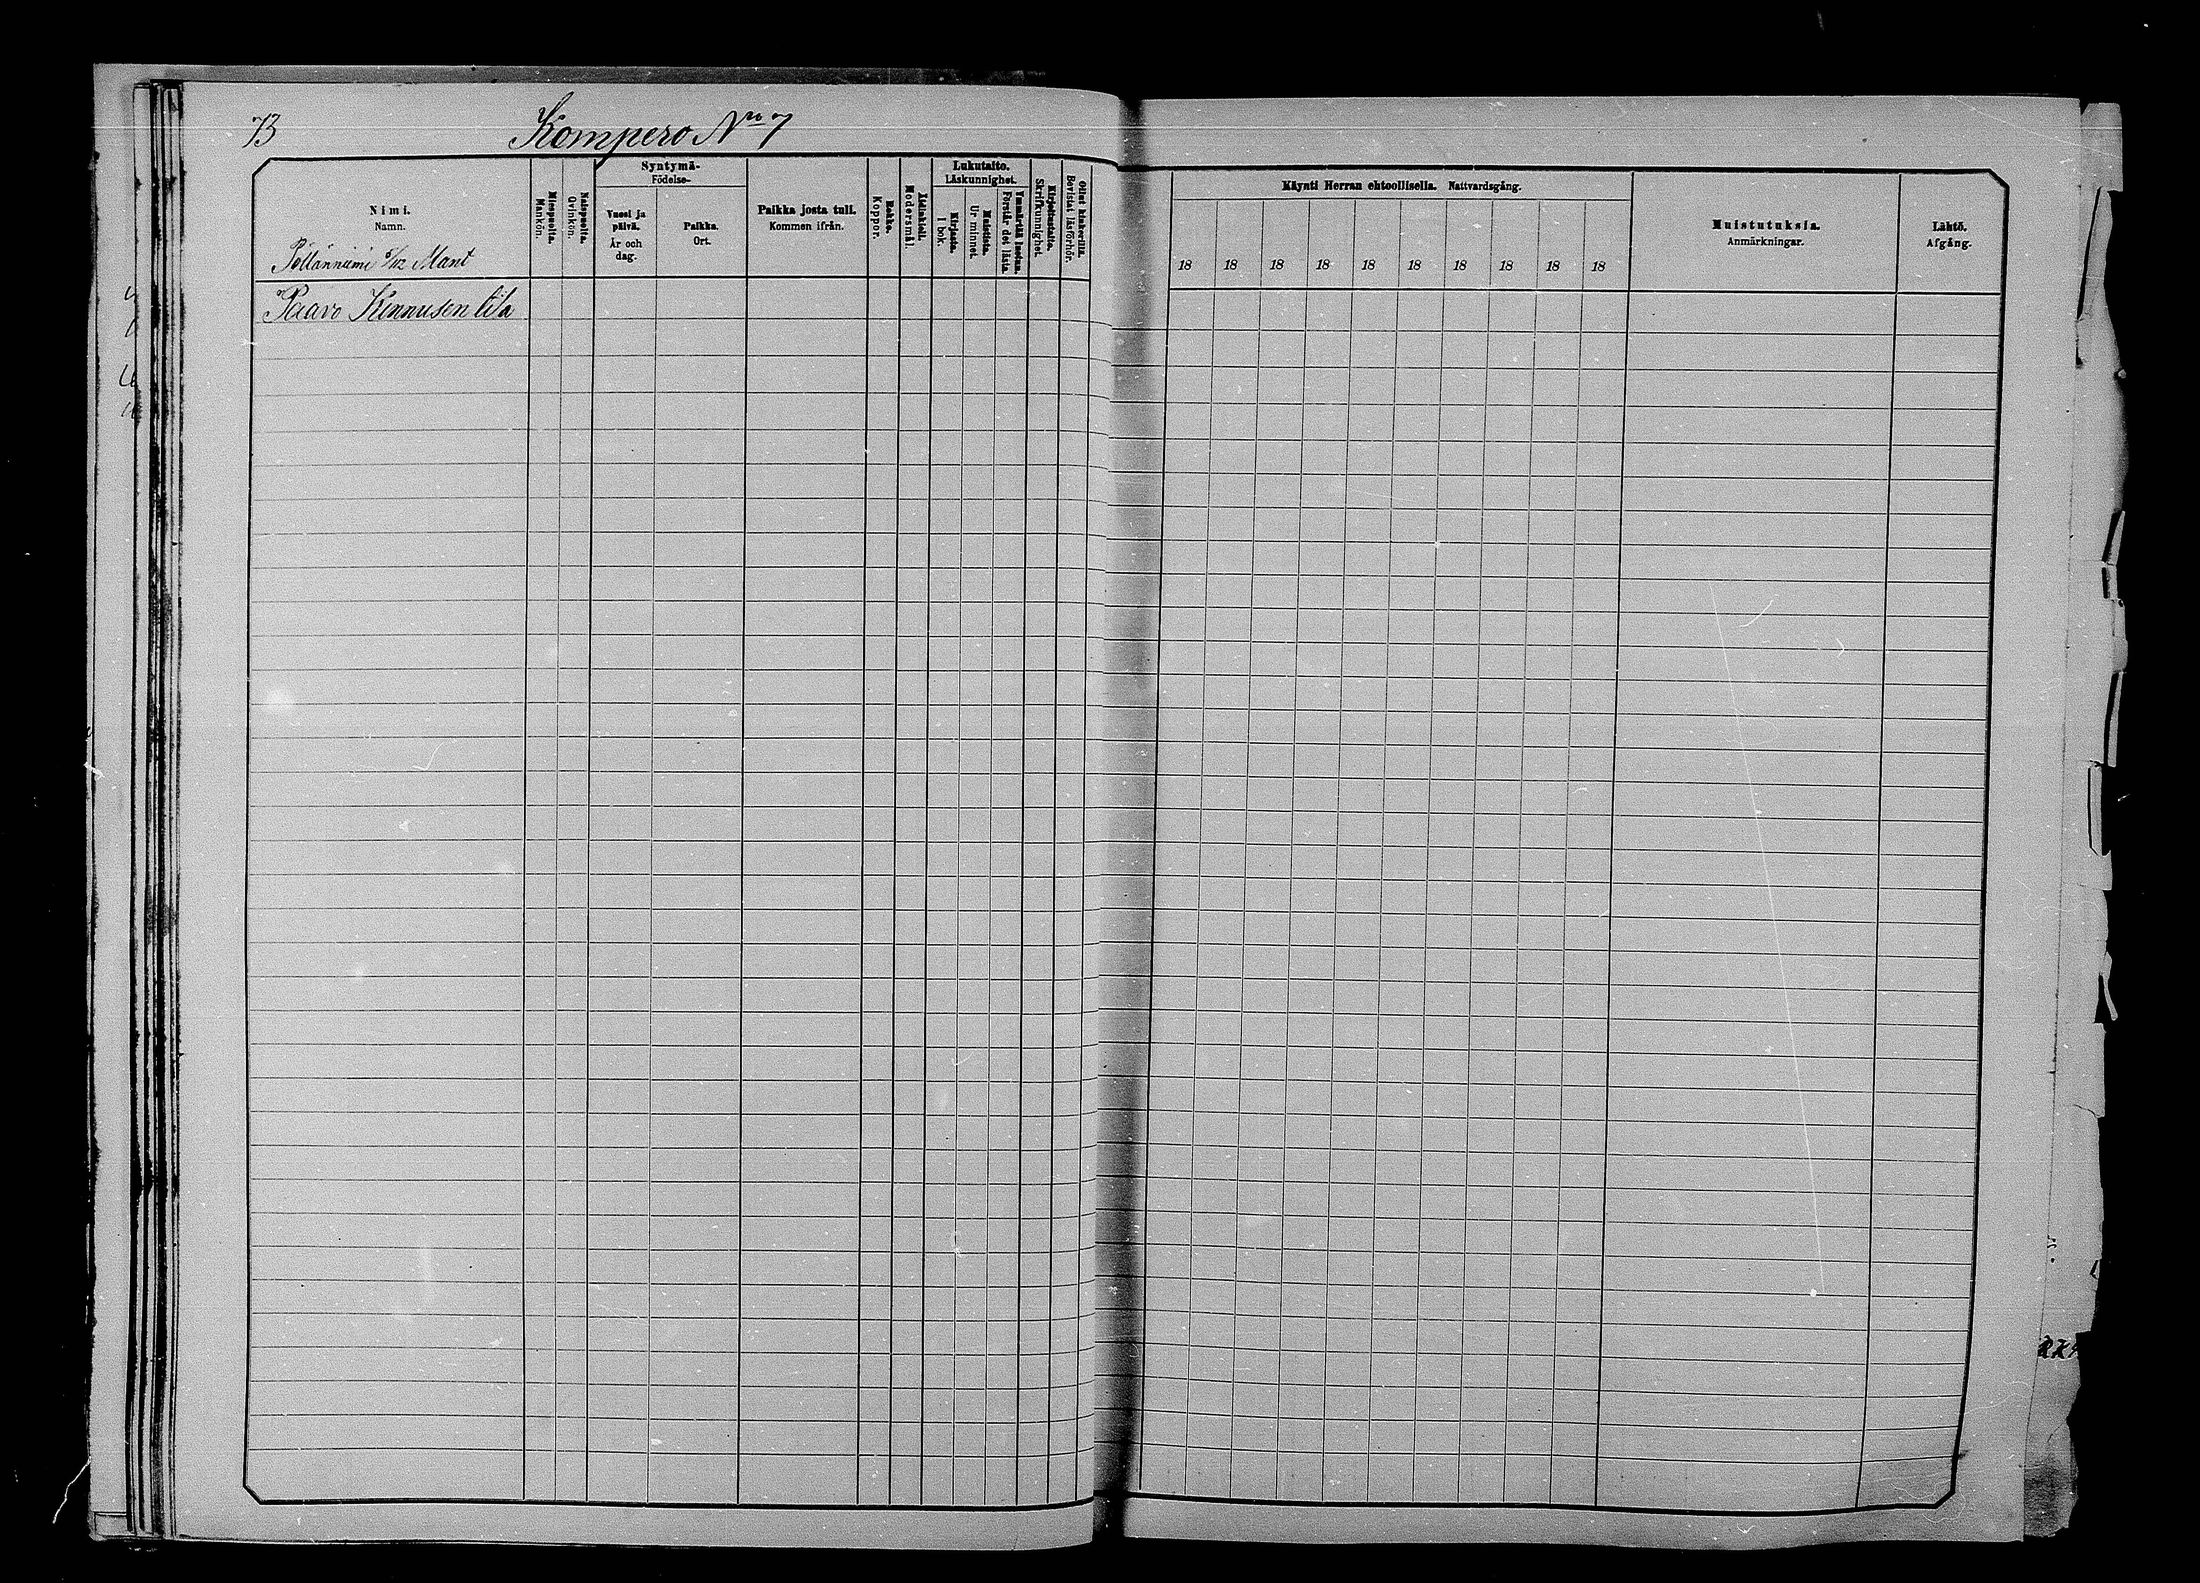 73
Kompero No 7
Nimi.
Namn.
Pöllänniemi 5/12 Mant
Miespuolta.
Mankön.
Naispuolta.
Qvinkön.
Syntymä-
Födelse-
Vuosi ja
päivä.
År och
dag.
Paikka.
Ort.
Paikka josta tuli.
Kommen ifrån.
Rokko.
Koppor.
Äitinkieli.
Modersmål.
Lukutaito.
Läskunnighet.
Kirjasta.
I bok.
Muistista.
Ur minnet.
Ymmärtää luetun.
Förstår det lästa.
Kirjoitustaito.
Skrifkunnighet.
Ollut kinkerillä.
Bevistat läsförhör.
Käynti Herran ehtoollisella. Nattvardsgång.
18 18 18 18 18 18 18 18 18 18
Muistutuksia.
Anmärkningar.
Lähtö.
Afgång.
Paavo Kinnusen tila